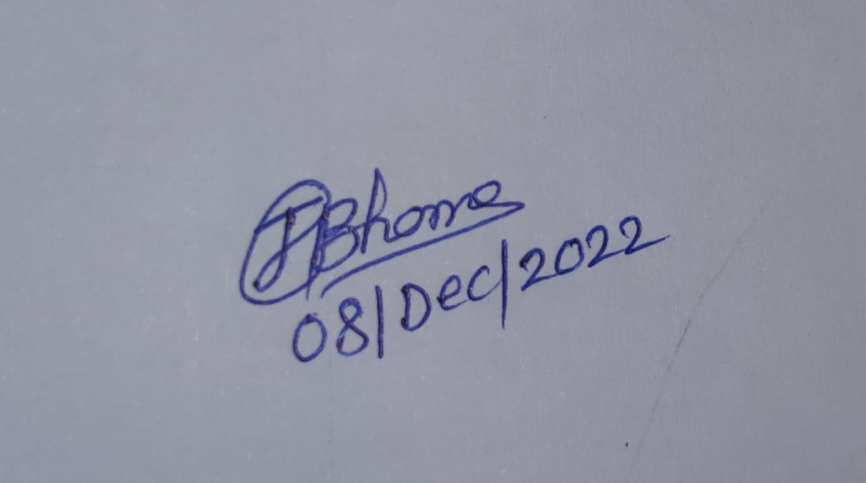 Bhome
08/Dec/2022